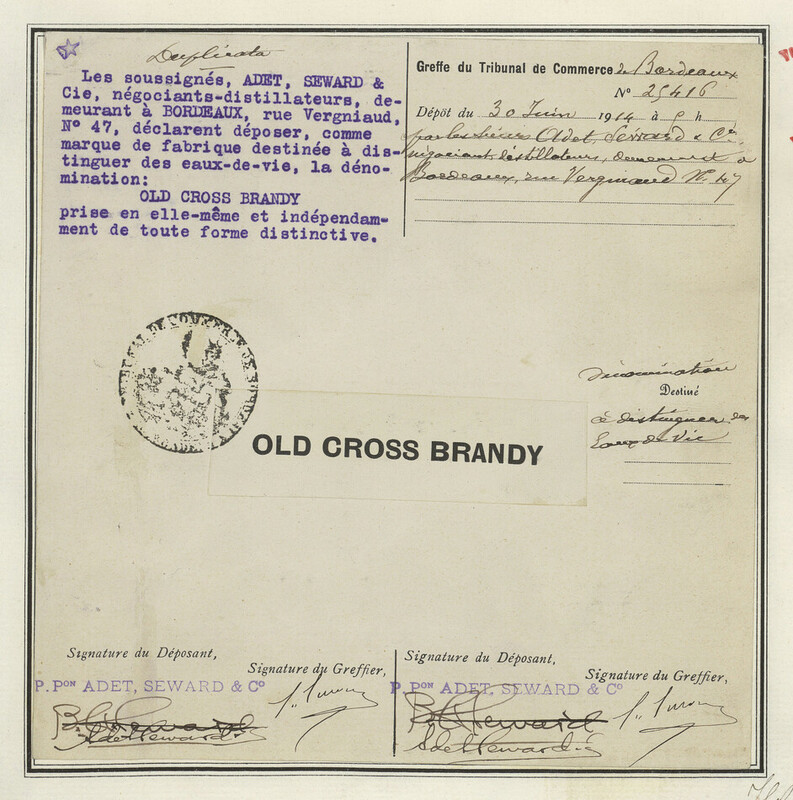 Duplicata
Les soussignés, ADET, SEWARD &
Cie, négociants-distillateurs, de-
meurant à BORDEAUX, rue Vergniaud,
N° 47, déclarent déposer, comme
marque de fabrique destinée à dis-
tinguer des eaux-de-vie, la déno-
mination:
OLD CROSS BRANDY
prise en elle-même et indépendam-
ment de toute forme distinctive.
Greffe du Tribunal de Commerce de Bordeaux
N° 25416
Dépôt du 30 Juin 1914 à h
par les sieurs Adet, Seward & Cie
négociants distillateurs, demeurant à
Bordeaux, rue Vergniaud N° 47
Dénomination
Destiné
à distinguer des
Eaux de Vie
OLD CROSS BRANDY
Signature du Déposant,
Signature du Greffier,
P. PON ADET, SEWARD & Co
Adet Seward & Cie
Signature du Déposant,
Signature du Greffier,
P. PON ADET, SEWARD & Co
Adet Seward & Cie